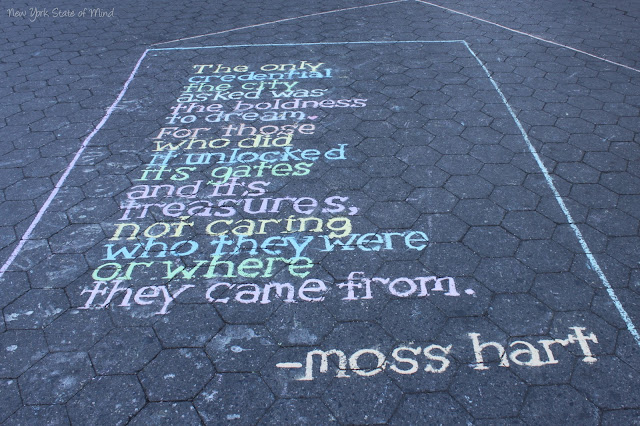 New York State of Mind
The only
credential
the city
asked was
the boldness
to dream.
For those
who did
it unlocked
its gates
and its
treasures,
not caring
who they were
or where
they came from.
-moss hart